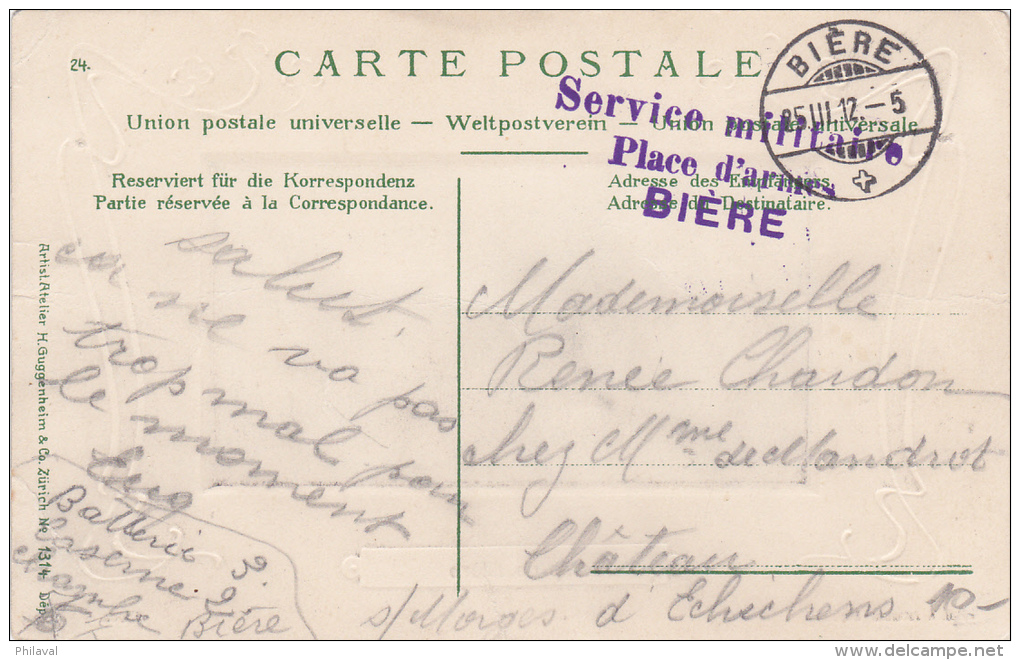 24.
CARTE POSTALE
BIÈRE
25 III 12. – 5
Service militaire
Place d'armes
BIÈRE
Union postale universelle — Weltpostverein — Union postale universale
Reserviert für die Korrespondenz
Partie réservée à la Correspondance.
Adresse des Empfängers.
Adresse du Destinataire.
salut,
ça ne va pas
trop mal pour
le moment
Batterie 3.
Caserne 2
Bière
Mademoiselle
Renée Chardon
chez Mme de Mandrot
Château
s/Morges d'Echichens
Artist. Atelier H. Guggenheim & Co. Zürich No 1314 Dép.
© Philaval
www.delcampe.net